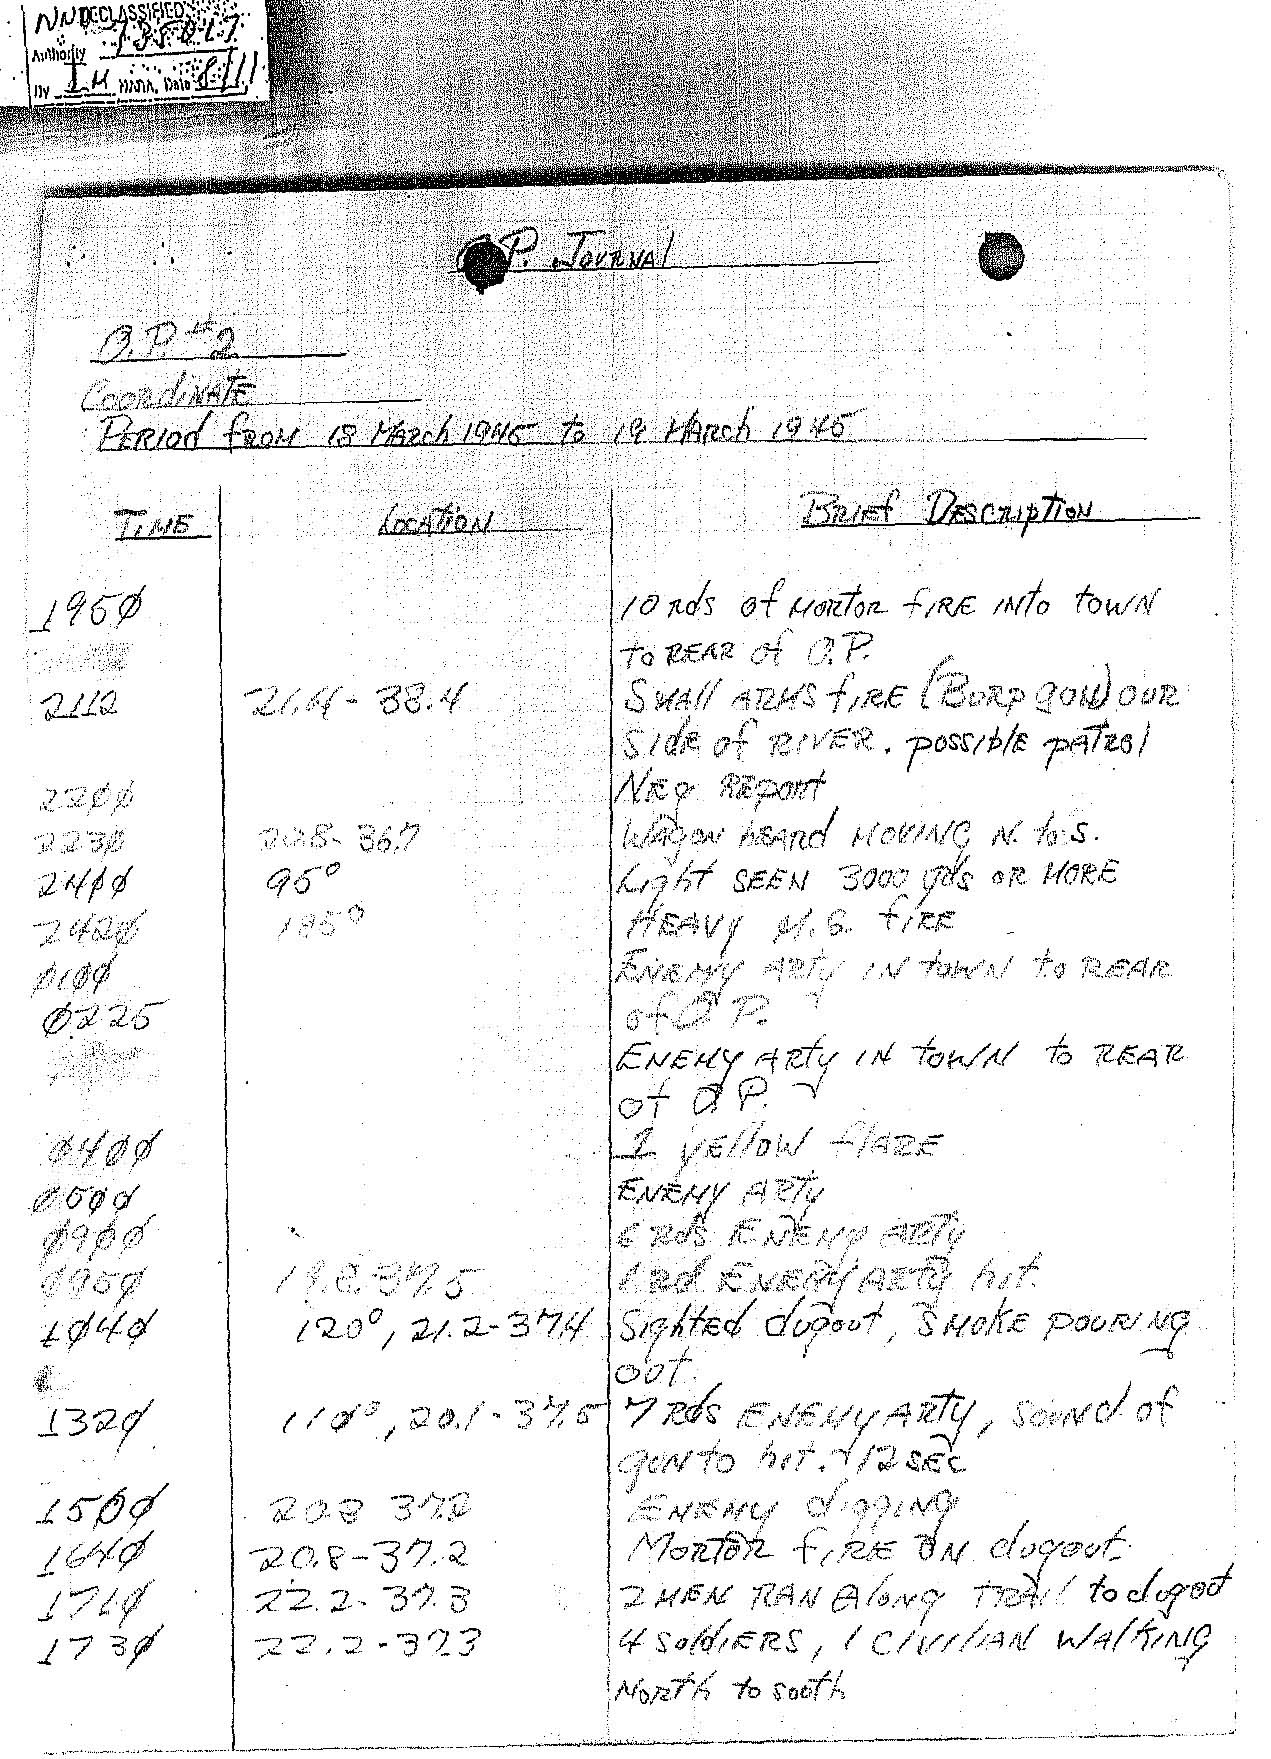 NND DECLASSIFIED
Authority 735017
By IH NARA, Date 8/11
O.P. Journal
O.P. #2
Coordinate
Period from 18 March 1945 to 19 March 1945
Time Location Brief Description
1950 10 rds of mortor fire into town
to rear of O.P.
2112 21.4-38.4 Small arms fire (Burp gun) our
side of river. possible patrol
2200 Neg Report
2230 20.8-36.7 Wagon heard moving N. to S.
2400 95° Light seen 3000 yds or more
2420 185° Heavy M.G. fire
0100 Enemy Arty in town to rear
0225 of O.P.
Enemy Arty in town to rear
of O.P.
0400 1 yellow flare
0500 Enemy Arty
0900 6 rds Enemy Arty
0950 19.8-37.5 1 rd. Enemy Arty hit.
1040 120°, 21.2-37.4 Sighted dugout, smoke pouring
out.
1320 110°, 20.1-37.5 7 rds Enemy Arty, sound of
gun to hit. 12 sec
1500 20.8 37.2 Enemy digging
1640 20.8-37.2 Mortor fire on dugout.
1710 22.2-37.3 2 men ran along trail to dugout
1730 22.2-37.3 4 soldiers, 1 civilian walking
North to south